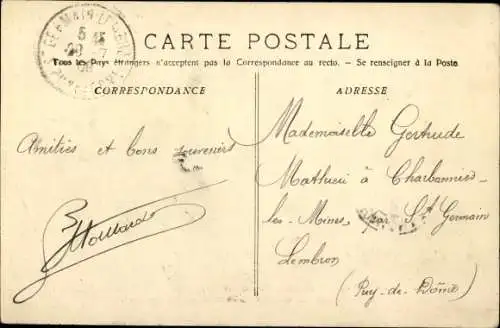 ST GERMAIN LEMBRON
5
PUY-DE-DOME
CARTE POSTALE
Tous les Pays étrangers n'acceptent pas la Correspondance au recto. — Se renseigner à la Poste
CORRESPONDANCE
ADRESSE
Amitiés et bons souvenirs
Mademoiselle Gertrude
Mathieu à Charbonnier-
les-Mines, par St Germain
Lembron
(Puy-de-Dôme)